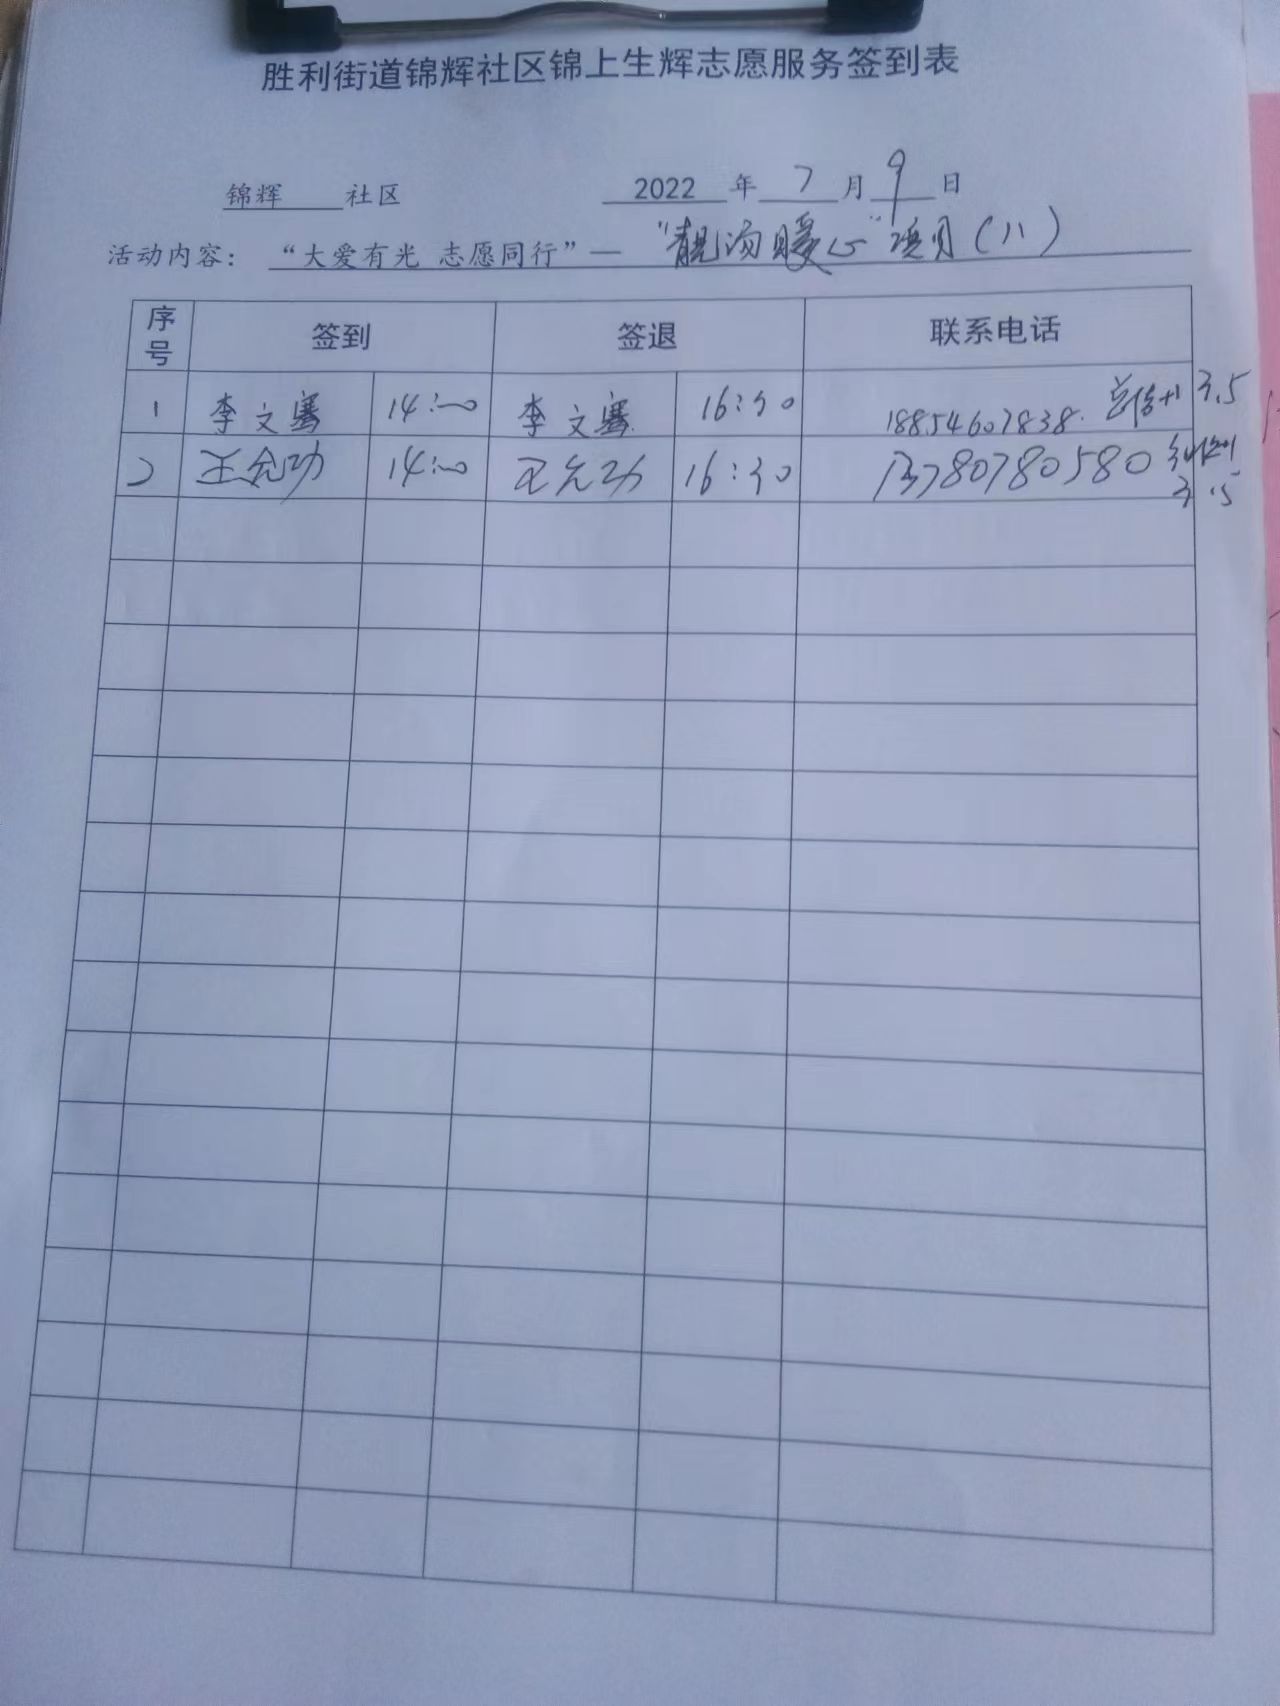 胜利街道锦辉社区锦上生辉志愿服务签到表
锦辉 社区 2022 年 7 月 9 日
活动内容：“大爱有光 志愿同行”—“靓汤暖心”项目(八)
序号 签到 签退 联系电话
1 李文骞 14:00 李文骞 16:30 18854607838. 3.5
2 王允功 14:00 王允功 16:30 13780780580
3.5